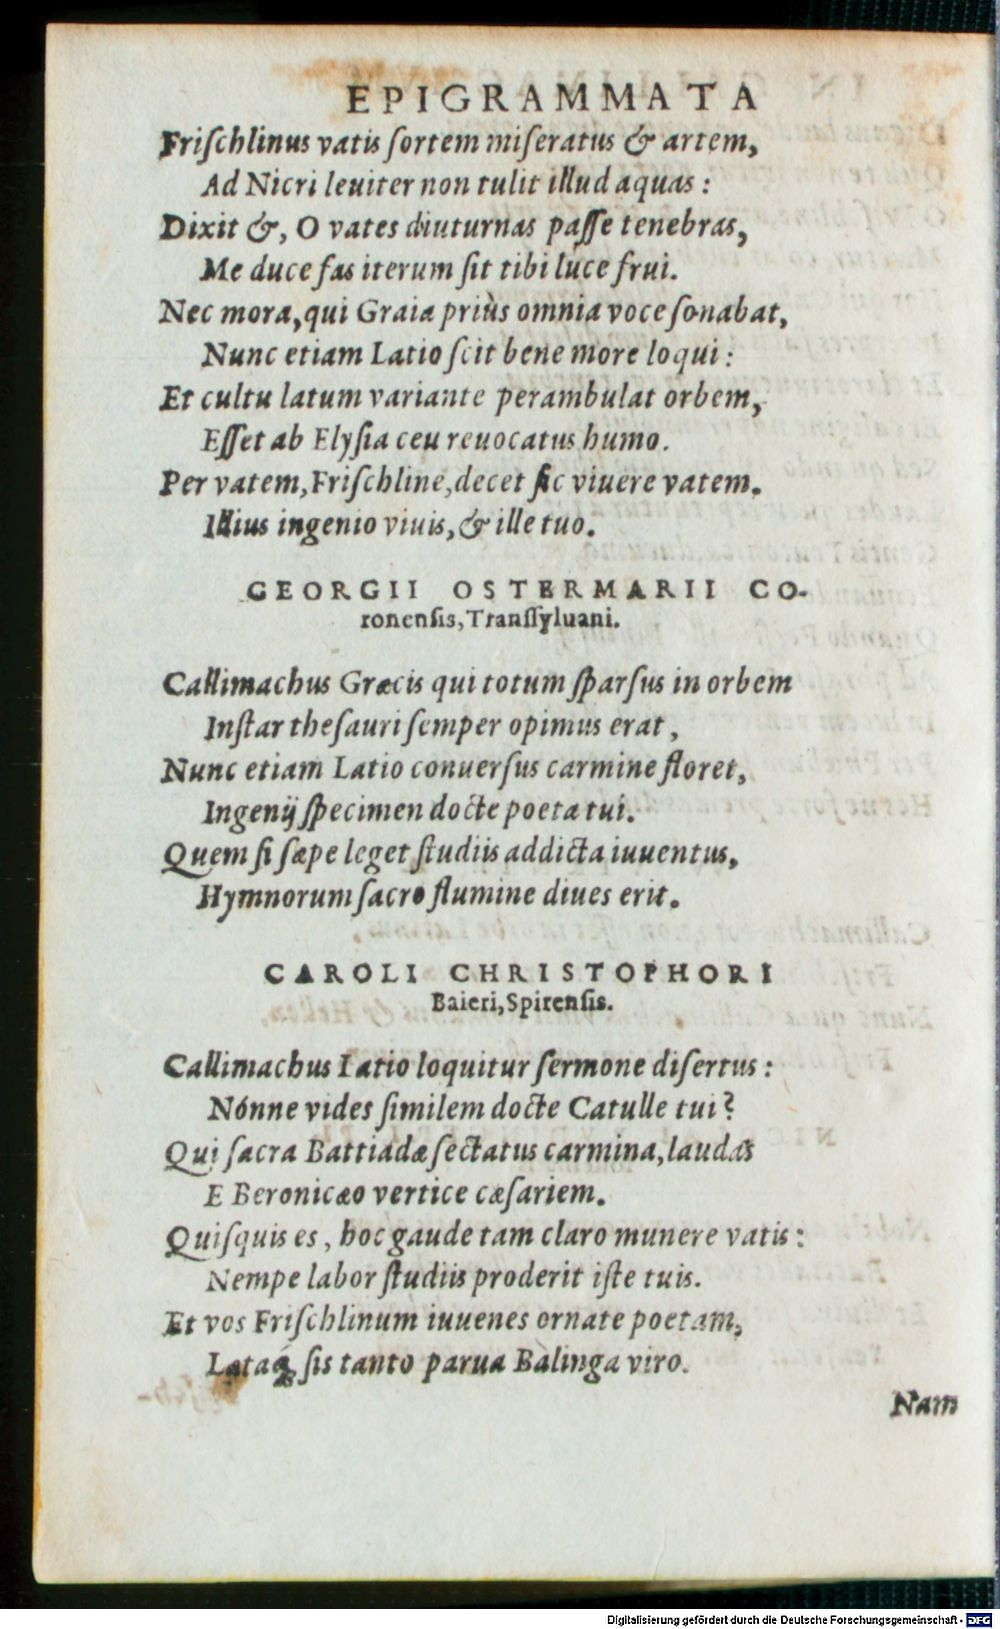 EPIGRAMMATA
Friſchlinus vatis ſortem miſeratus & artem,
Ad Nicri leuiter non tulit illud aquas:
Dixit &, O vates diuturnas paſſe tenebras,
Me duce fas iterum ſit tibi luce frui.
Nec mora, qui Graia priùs omnia voce ſonabat,
Nunc etiam Latio ſcit bene more loqui:
Et cultu latum variante perambulat orbem,
Eſſet ab Elyſia ceu reuocatus humo.
Per vatem, Friſchline, decet ſic viuere vatem.
Illius ingenio viuis, & ille tuo.
GEORGII OSTERMARII CO-
ronenſis, Tranſſyluani.
Callimachus Græcis qui totum ſparſus in orbem
Inſtar theſauri ſemper opimus erat,
Nunc etiam Latio conuerſus carmine floret,
Ingenij ſpecimen docte poeta tui.
Quem ſi ſæpe leget ſtudiis addicta iuuentus,
Hymnorum ſacro flumine diues erit.
CAROLI CHRISTOPHORI
Baieri, Spirenſis.
Callimachus Latio loquitur ſermone diſertus:
Nónne vides ſimilem docte Catulle tui?
Qui ſacra Battiadæ ſectatus carmina, laudas
E Beronicæo vertice cæſariem.
Quiſquis es, hoc gaude tam claro munere vatis:
Nempe labor ſtudiis proderit iſte tuis.
Et vos Friſchlinum iuuenes ornate poetam,
Lataq́ſ sis tanto parua Balinga viro.
Nam
Digitalisierung gefördert durch die Deutsche Forschungsgemeinschaft - DFG